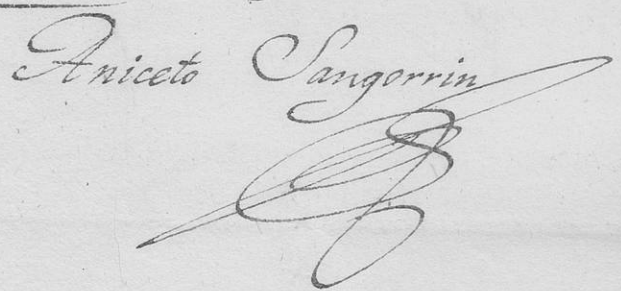 Aniceto Sangorrin